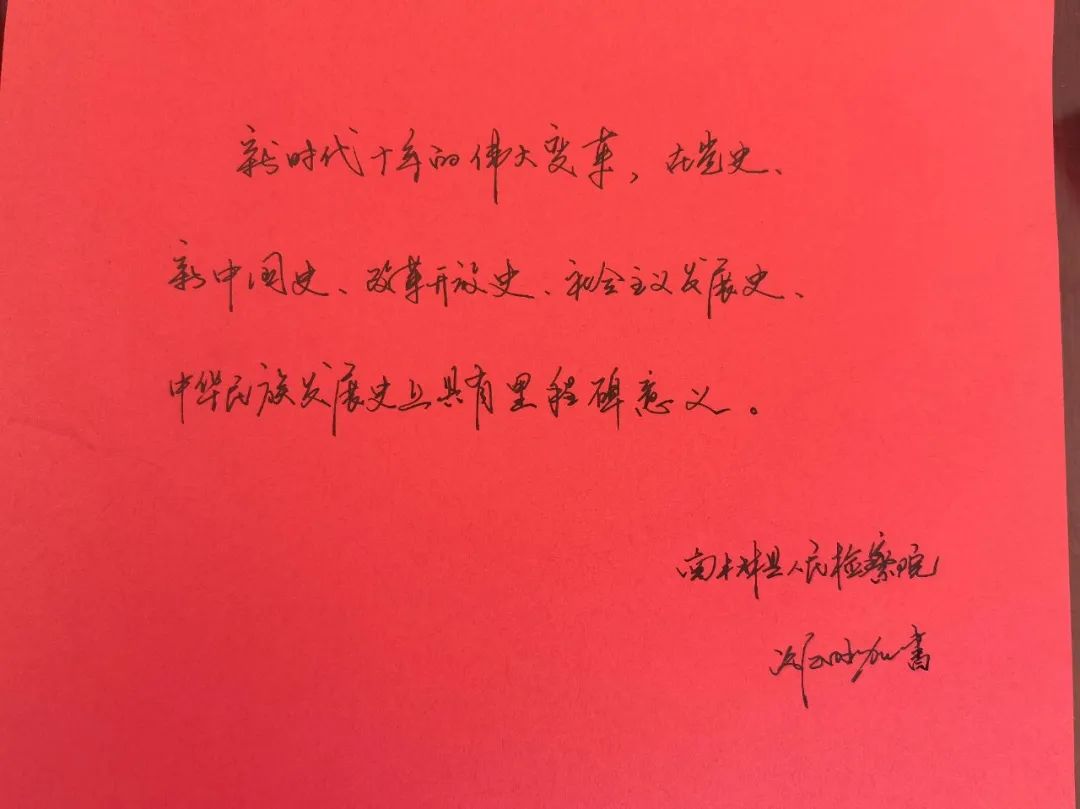 新时代十年的伟大变革，在党史、
新中国史、改革开放史、社会主义发展史、
中华民族发展史上具有里程碑意义。
南木林县人民检察院
加书